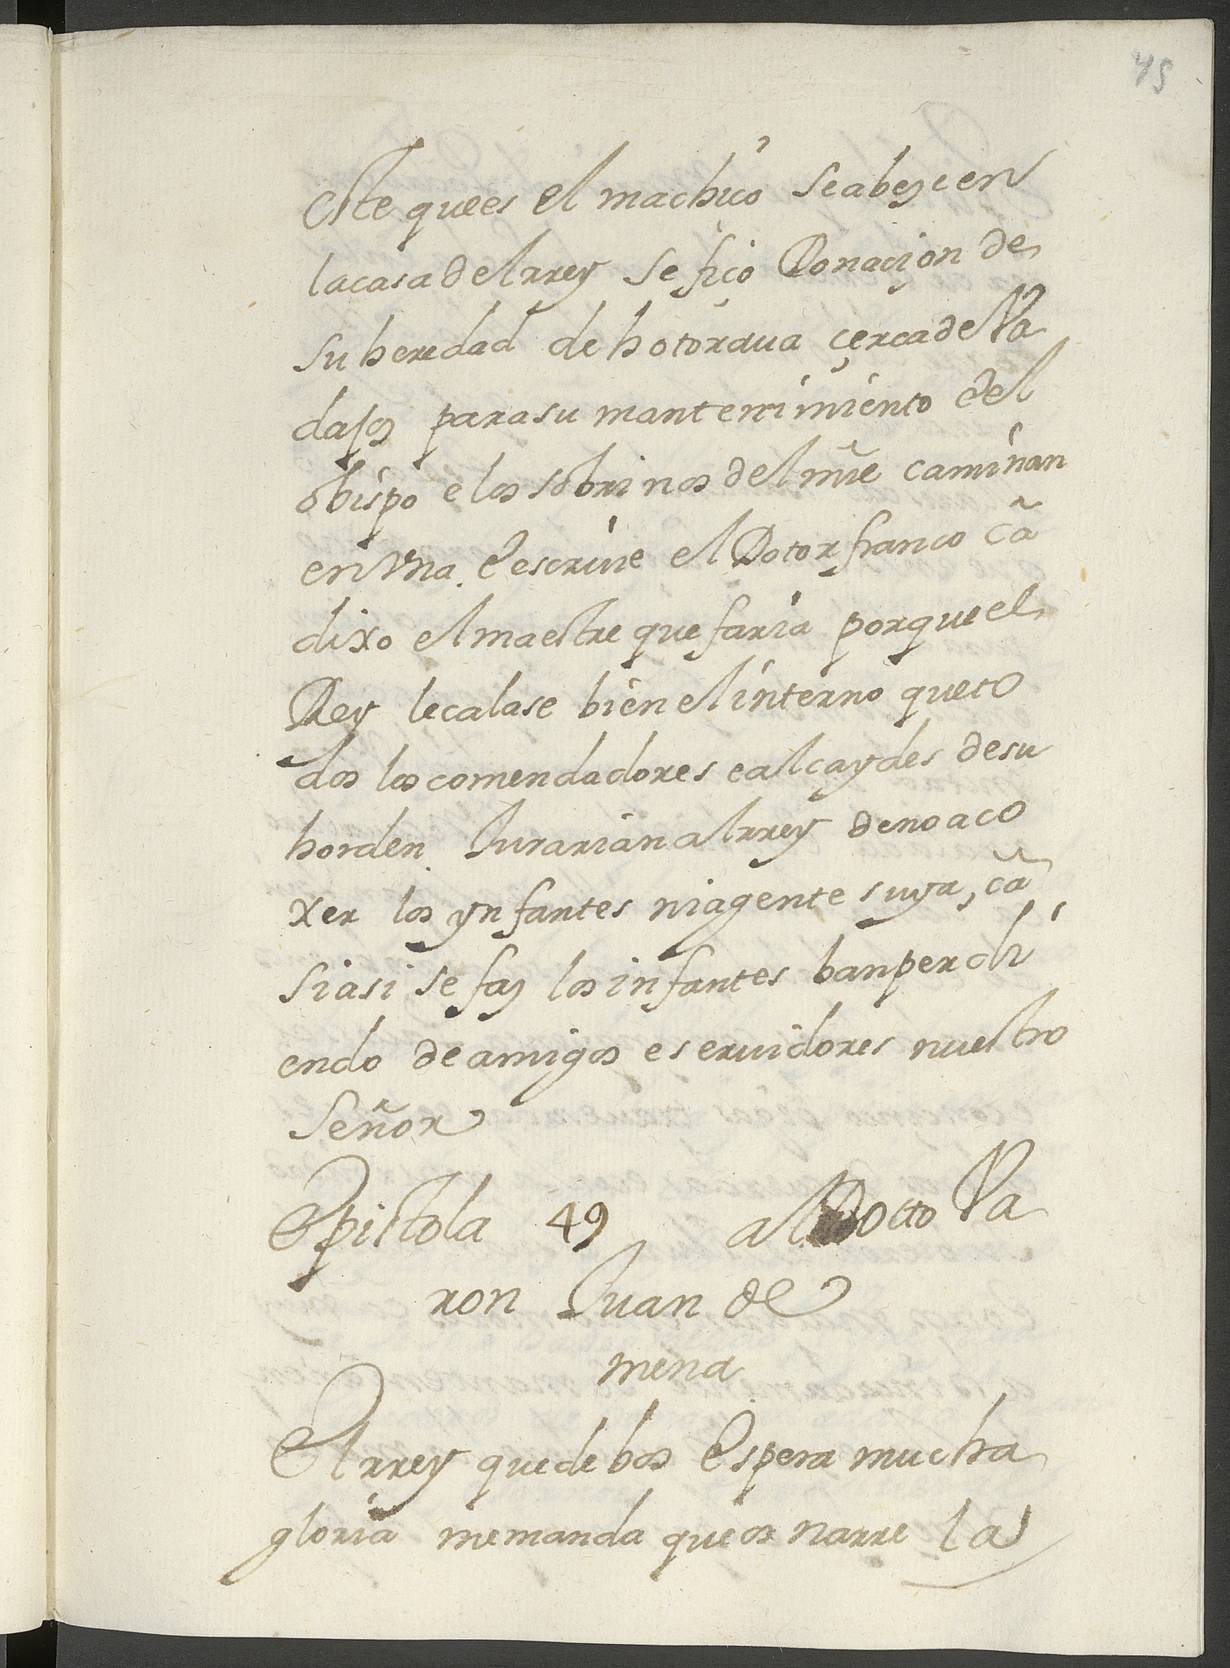 45
este que es el machico se abeçen
la casa del rrey se fiço Donaçion de
su heredad de hotorgua çerca de Va
dajoz para su mantenimiento el
obispo e los sobrinos del mr̃e caminan
en vna. E escriuie el Dotor franco cã
dixo el maestre que faria por que el
Rey le calase bien el interno que to
dos los comendadores e alcaydes de su
horden Iurarian al rrey de no aco
xer los ynfantes ni a gente suya, cã
si asi se faz los infantes ban perdi
endo de amigos e seruidores nuestro
Señor
Epistola 49 al Docto Va
ron Iuan de
mena
El rrey que de bos Espera mucha
gloria me manda que os narre la